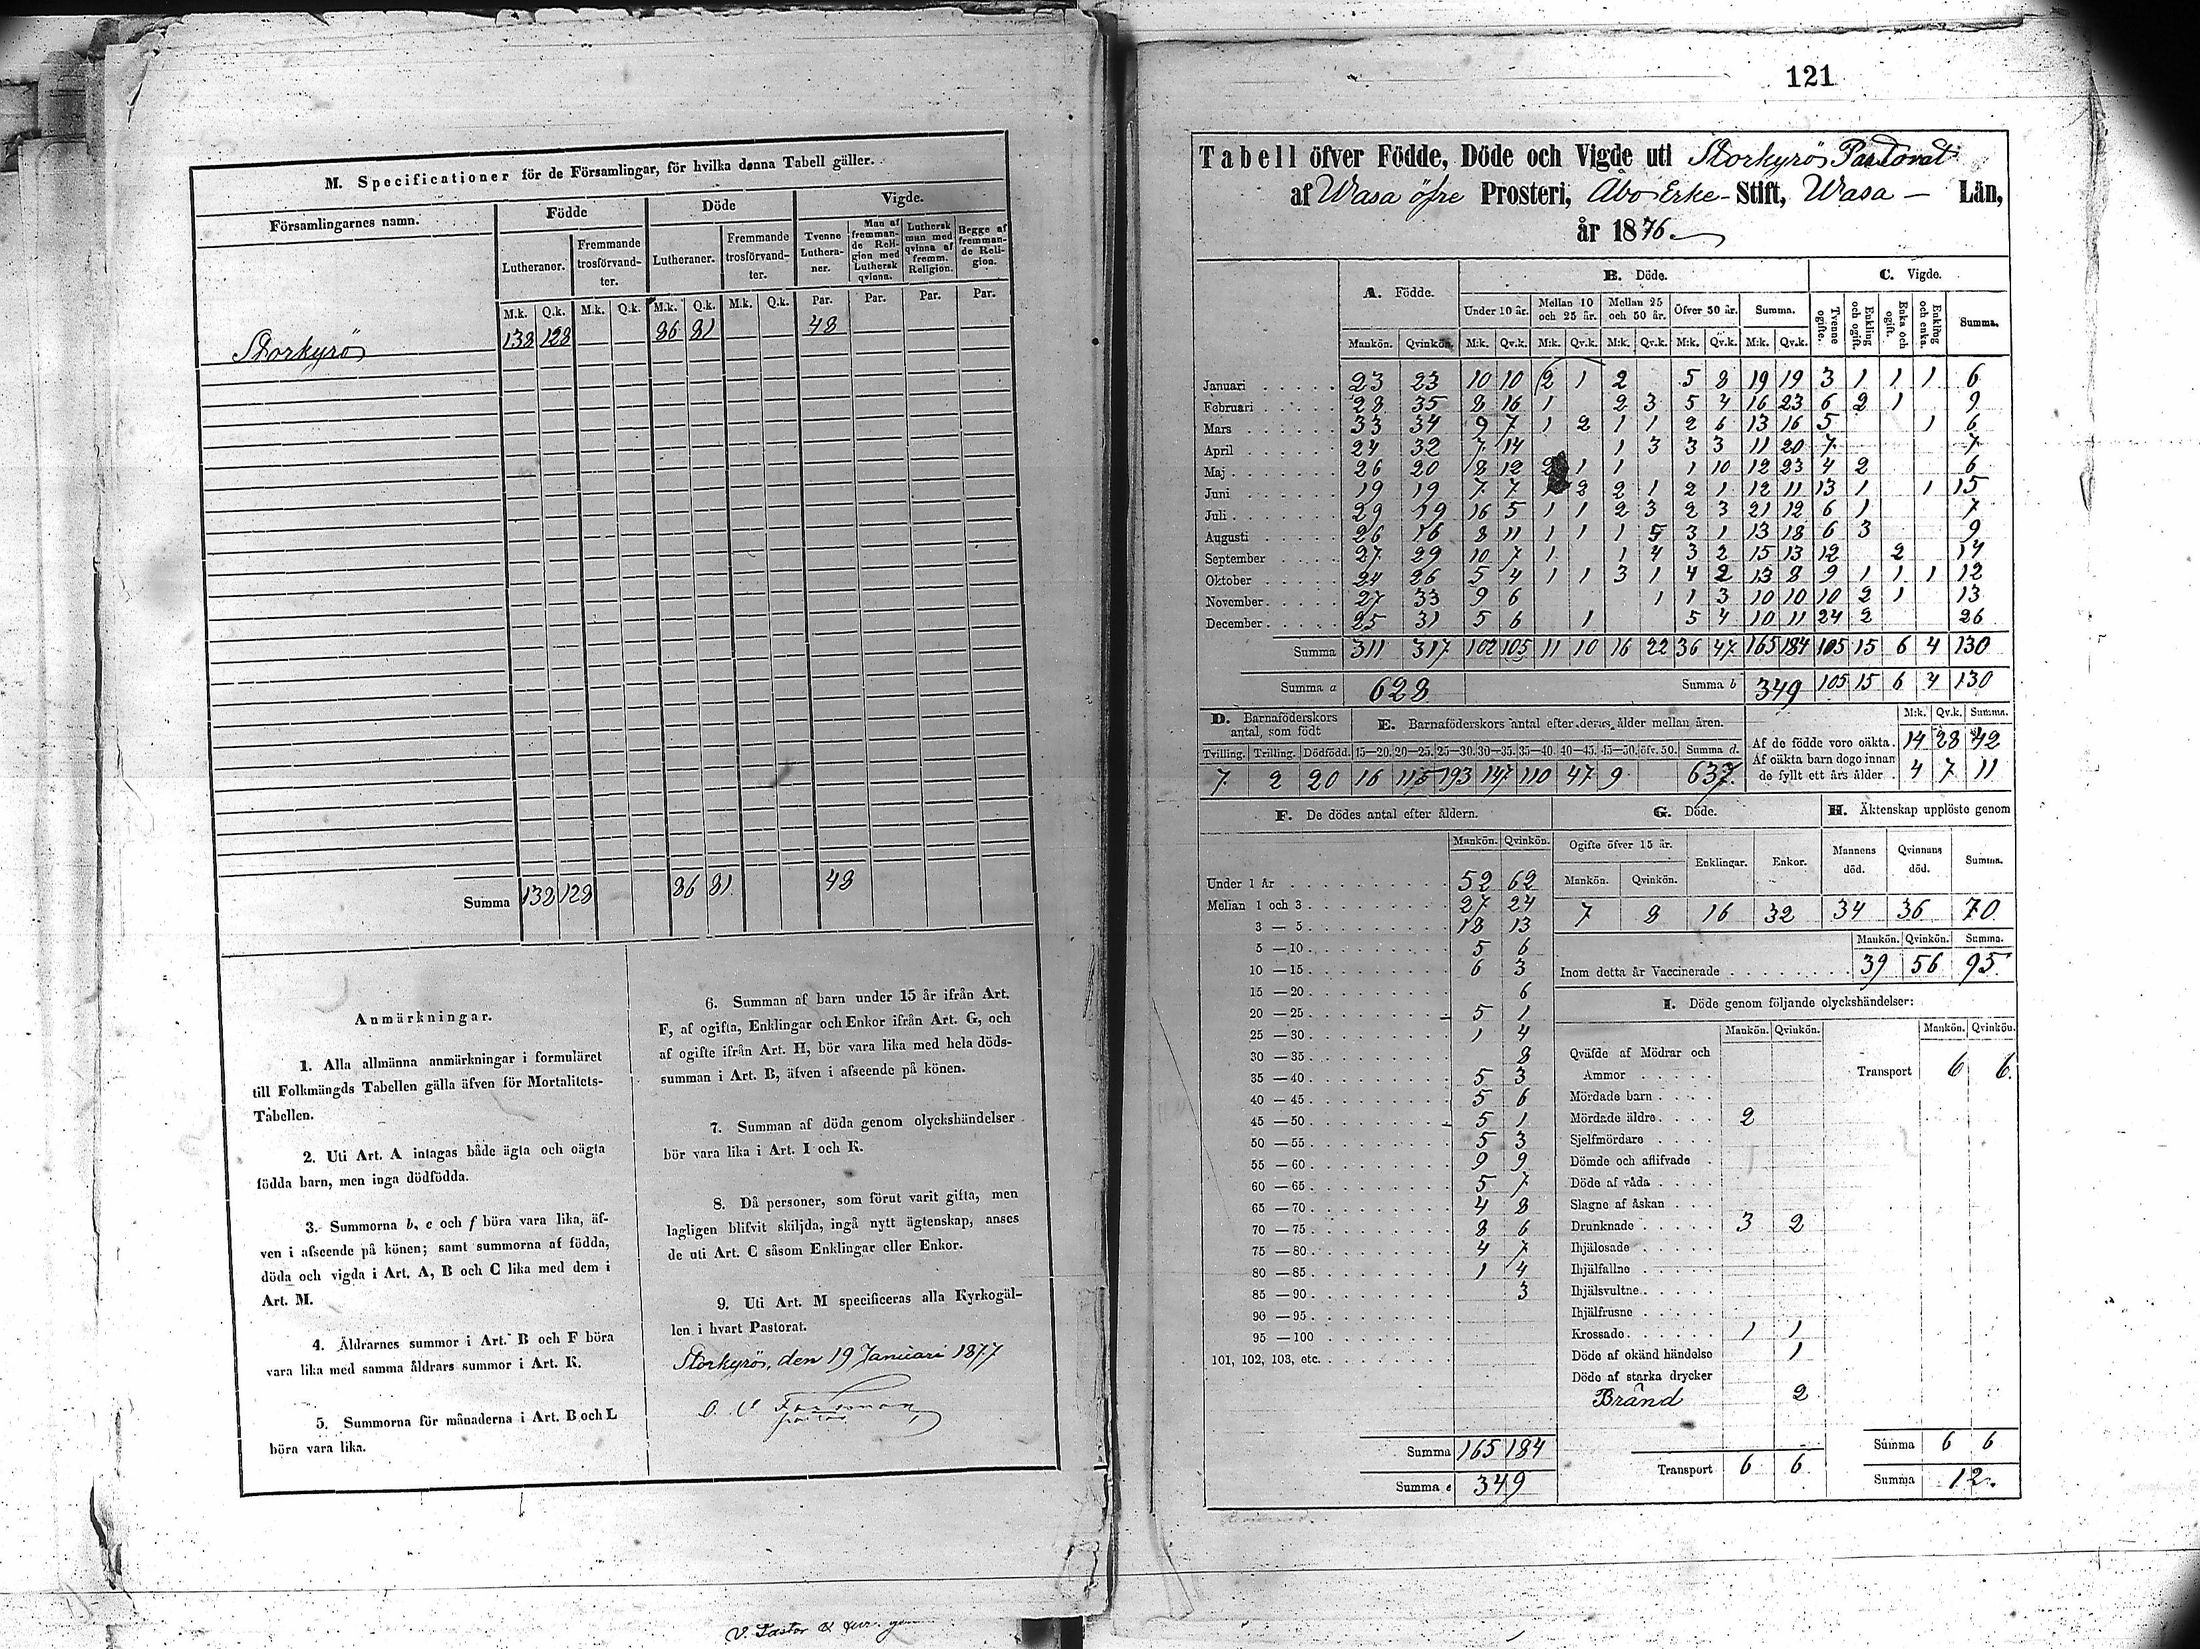 M. Specificationer för de Församlingar, för hvilka denna Tabell gäller.
Församlingarnes namn. Födde Döde Vigde.
Lutheraner. Fremmande trosförvandter. Lutheraner. Fremmande trosförvandter. Tvenne Lutheraner. Man af fremmande Religion med Luthersk qvinna. Luthersk man med qvinna af fremm. Religion. Begge af fremmande Religion.
M.k. Q.k. M.k. Q.k. M.k. Q.k. M.k. Q.k. Par. Par. Par. Par.
Storkyrö 138 128 86 81 48
Summa 138 128 86 81 48
Anmärkningar.
1. Alla allmänna anmärkningar i formuläret
till Folkmängds Tabellen gälla äfven för Mortalitets-
Tabellen.
2. Uti Art. A intagas både ägta och oägta
födda barn, men inga dödfödda.
3. Summorna b, e och f böra vara lika, äf-
ven i afseende på könen; samt summorna af födda,
döda och vigda i Art. A, B och C lika med dem i
Art. M.
4. Åldrarnes summor i Art. B och F böra
vara lika med samma åldrars summor i Art. K.
5. Summorna för månaderna i Art. B och L
böra vara lika.
6. Summan af barn under 15 år ifrån Art.
F, af ogifta, Enklingar och Enkor ifrån Art. G, och
af ogifte ifrån Art. H, bör vara lika med hela döds-
summan i Art. B, äfven i afseende på könen.
7. Summan af döda genom olyckshändelser
bör vara lika i Art. I och K.
8. Då personer, som förut varit gifta, men
lagligen blifvit skiljda, ingå nytt ägtenskap, anses
de uti Art. C såsom Enklingar eller Enkor.
9. Uti Art. M specificeras alla Kyrkogäl-
len i hvart Pastorat.
Storkyrö, den 19 Januari 1877
V. Pastor
121
Tabell öfver Födde, Döde och Vigde uti Storkyrö Pastorat
af Wasa öfre Prosteri, Åbo Erke- Stift, Wasa – Län,
år 1876.
A. Födde. B. Döde. C. Vigde.
Under 10 år. Mellan 10 och 25 år. Mellan 25 och 50 år. Öfver 50 år. Summa. Tvenne ogifte. Enkling och ogift. Enka och ogift. Enkling och enka. Summa.
Mankön. Qvinkön. M:k. Qv.k. M:k. Qv.k. M:k. Qv.k. M:k. Qv.k. M:k. Qv.k.
Januari 23 23 10 10 2 1 2 5 8 19 19 3 1 1 1 6
Februari 28 35 8 16 1 2 3 5 4 16 23 6 2 1 9
Mars 33 34 9 7 1 2 1 1 2 6 13 16 5 1 6
April 24 32 7 14 1 3 3 3 11 20 7 7
Maj 26 20 8 12 2 1 1 1 10 12 23 4 2 6
Juni 19 19 7 7 1 2 2 1 2 1 12 11 13 1 1 15
Juli 29 19 16 5 1 1 2 3 2 3 21 12 6 1 7
Augusti 26 16 8 11 1 1 1 5 3 1 13 18 6 3 9
September 27 29 10 7 1 1 4 3 2 15 13 12 2 14
Oktober 24 26 5 4 1 1 3 1 4 2 13 8 9 1 1 1 12
November 27 33 9 6 1 1 3 10 10 10 2 1 13
December 25 31 5 6 1 5 4 10 11 24 2 26
Summa 311 317 102 105 11 10 16 22 36 47 165 184 105 15 6 4 130
Summa a 628 Summa b 349 105 15 6 4 130
D. Barnaföderskors antal, som födt
E. Barnaföderskors antal efter deras ålder mellan åren.
Tvilling. Trilling. Dödfödd. 15—20. 20—25. 25—30. 30—35. 35—40. 40—45. 45—50. öfv. 50. Summa d.
7 2 20 16 115 193 147 110 47 9 637.
M:k. Qv.k. Summa.
Af de födde voro oäkta. 14 28 42
Af oäkta barn dogo innan
de fyllt ett års ålder. 4 7 11
F. De dödes antal efter åldern.
Mankön. Qvinkön.
Under 1 År 52 62
Mellan 1 och 3 27 24
3 — 5 18 13
5 — 10 5 6
10 — 15 6 3
15 — 20 6
20 — 25 5 1
25 — 30 1 4
30 — 35 8
35 — 40 5 3
40 — 45 5 6
45 — 50 5 1
50 — 55 5 3
55 — 60 9 9
60 — 65 5 7
65 — 70 4 8
70 — 75 8 6
75 — 80 4 7
80 — 85 1 4
85 — 90 3
90 — 95
95 — 100
101, 102, 103, etc.
Summa 165 184
Summa e 349
G. Döde.
Ogifte öfver 15 år. Enklingar. Enkor.
Mankön. Qvinkön.
7 8 16 32
H. Äktenskap upplöste genom
Mannens död. Qvinnans död. Summa.
34 36 70
Mankön. Qvinkön. Summa.
Inom detta år Vaccinerade 39 56 95
I. Döde genom följande olyckshändelser:
Mankön. Qvinkön. Mankön. Qvinkön.
Qväfde af Mödrar och
Ammor
Transport 6 6.
Mördade barn
Mördade äldre 2
Sjelfmördare
Dömde och aflifvade
Döde af våda
Slagne af åskan
Drunknade 3 2
Ihjälosade
Ihjälfallne
Ihjälsvultne
Ihjälfrusne
Krossade 1 1
Döde af okänd händelse 1
Döde af starka drycker
Bränd 2
Transport 6 6
Summa 6 6
Summa 12.